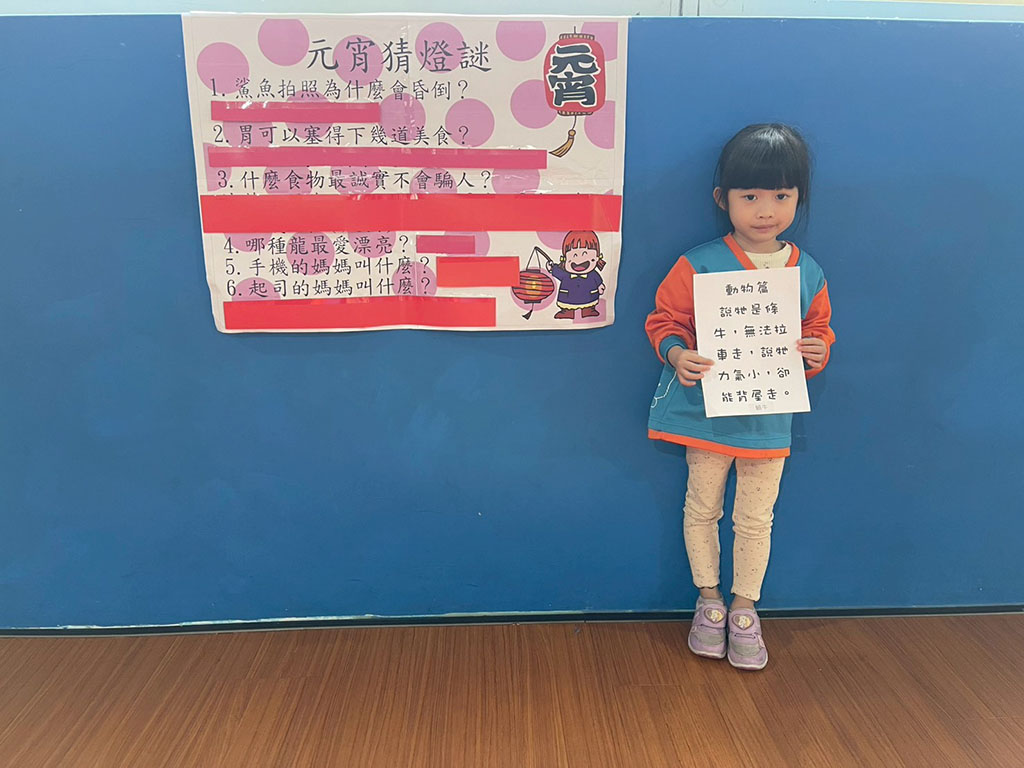 元宵猜燈謎
元宵
1. 鯊魚拍照為什麼會昏倒？
2. 胃可以塞得下幾道美食？
3. 什麼食物最誠實不會騙人？
4. 哪種龍最愛漂亮？
5. 手機的媽媽叫什麼？
6. 起司的媽媽叫什麼？
動物篇
說牠是條
牛，無法拉
車走，說牠
力氣小，卻
能背屋走。
蝸牛